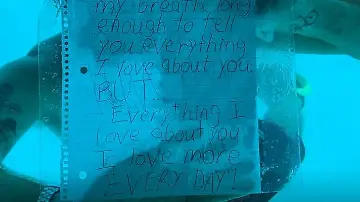 my breath long
enough to tell
you everything
I love about you
BUT
Everything I
love about you
I love more
EVERY DAY!